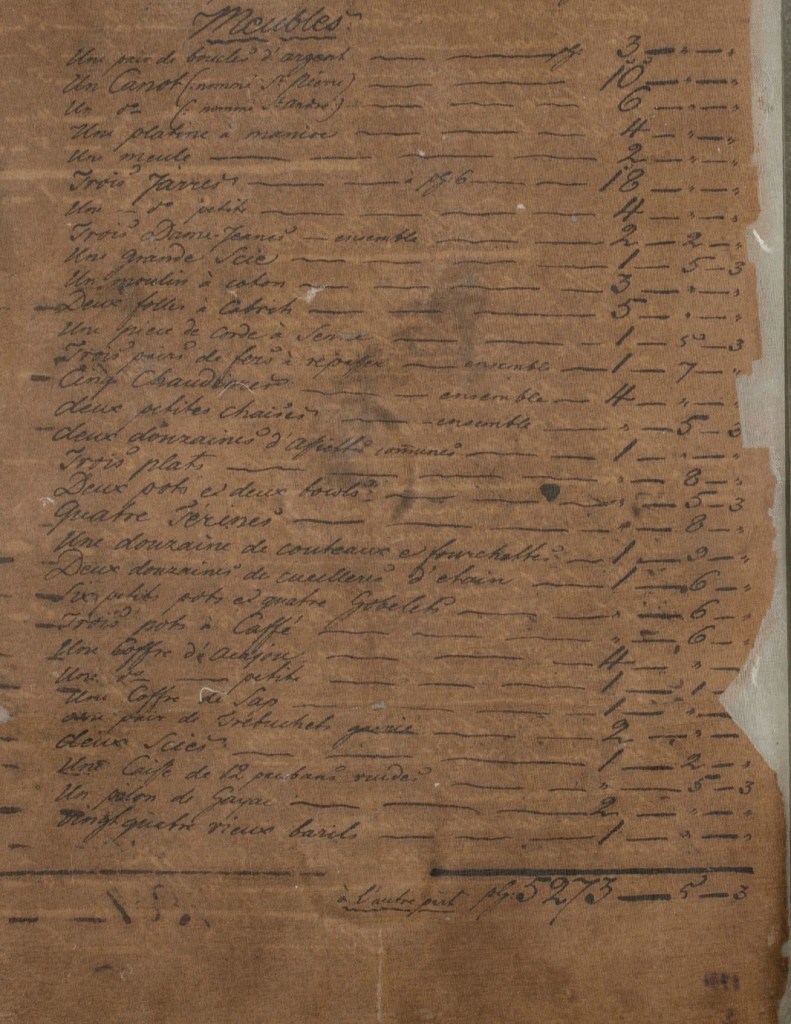 Meubles.
Une pair de boucles d'argent — pf: 3 — " — "
Un Canot (nommé St Pierre) — 10 — " — "
Un do (: nommé St André) — 6 — " — "
Une platine à manioc — 4 — " — "
Une meule — 2 — " — "
Trois Jarres — à pf: 6 — 18 — " — "
Une — do petite — 4 — " — "
Trois Dame-Jeanes — ensemble — 2 — 2 — "
Une grande Scie — 1 — 5 — 3
Un moulin à coton — 3 — " — "
Deux folles à Cabrits — 5 — " — "
Une piece de corde à Senne — 1 — 5 — 3
Trois pairs de fers à repasser — ensemble — 1 — 7 — "
Cinq Chaudieres — ensemble — 4 — " — "
deux petites chaises — ensemble — " — 5 — 3
deux douzaines d'assiettes comunes — 1 — " — "
Trois plats — " — 8 — "
Deux pots et deux bowls — " — 5 — 3
quatre Térines — " — 8 — "
Une douzaine de couteaux et fourchettes — 1 — 9 — "
Deux douzaines de cueilleres d'etain — 1 — 6 — "
Six petits pots et quatre Gobelets — " — 6 — "
Trois pots à Caffé — " — 6 — "
Une Coffre d'acajou — 4 — " — "
Une do — petite — 1 — 1 — "
Une Coffre de Sap — 1 — 1 — "
une pair de Trébuchets — 2 — " — "
deux Scies — 1 — 2 — "
Une Caisse de 12 paubans vuides — " — 5 — 3
Un pilon de Gayac — 2 — " — "
vingt quatre vieux barils — 1 — " — "
à l'autre part pf: 5273 — 5 — 3